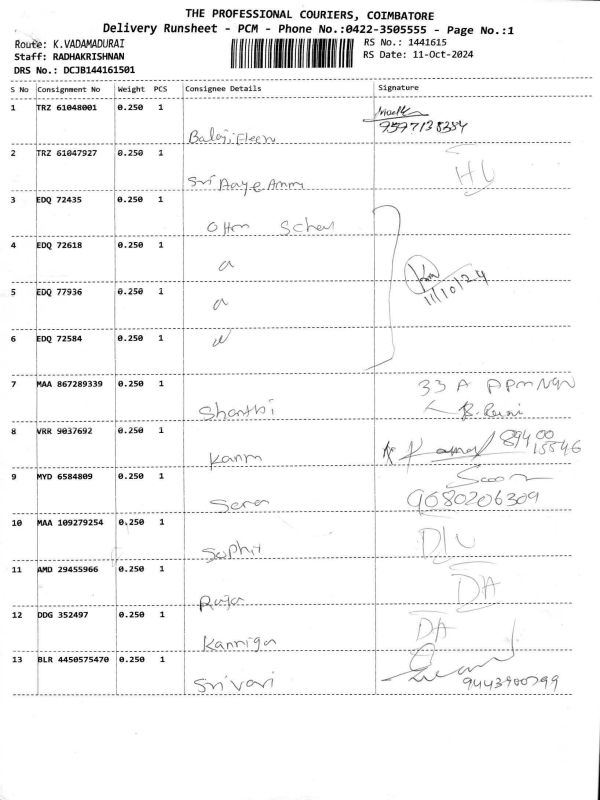 THE PROFESSIONAL COURIERS, COIMBATORE
Delivery Runsheet - PCM - Phone No.:0422-3505555 - Page No.:1
Route: K.VADAMADURAI
RS No.: 1441615
Staff: RADHAKRISHNAN
RS Date: 11-Oct-2024
DRS No.: DCJB144161501
S No Consignment No Weight PCS Consignee Details Signature
1 TRZ 61048001 0.250 1
Balaji
2 TRZ 61047927 0.250 1
Sri Aaye Amm
HL
3 EDQ 72435 0.250 1
4 EDQ 72618 0.250 1
11/10/24
5 EDQ 77936 0.250 1
6 EDQ 72584 0.250 1
7 MAA 867289339 0.250 1
33 A
Shanthi
8 VRR 9037692 0.250 1
89400
15546
Kanm
9 MYD 6584809 0.250 1
Sara
9080206309
10 MAA 109279254 0.250 1
D/L
11 AMD 29455966 0.250 1
DA
Raja
12 DDG 352497 0.250 1
DA
Kanniga
13 BLR 4450575470 0.250 1
Sri vari